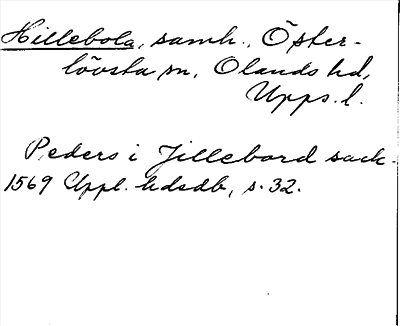 Hillebola, samh., Öster-
lövsta sn, Olands hd,
Upps. l.
Peders i Jillebord sack.
1569 Uppl. hdsdb, s. 32.